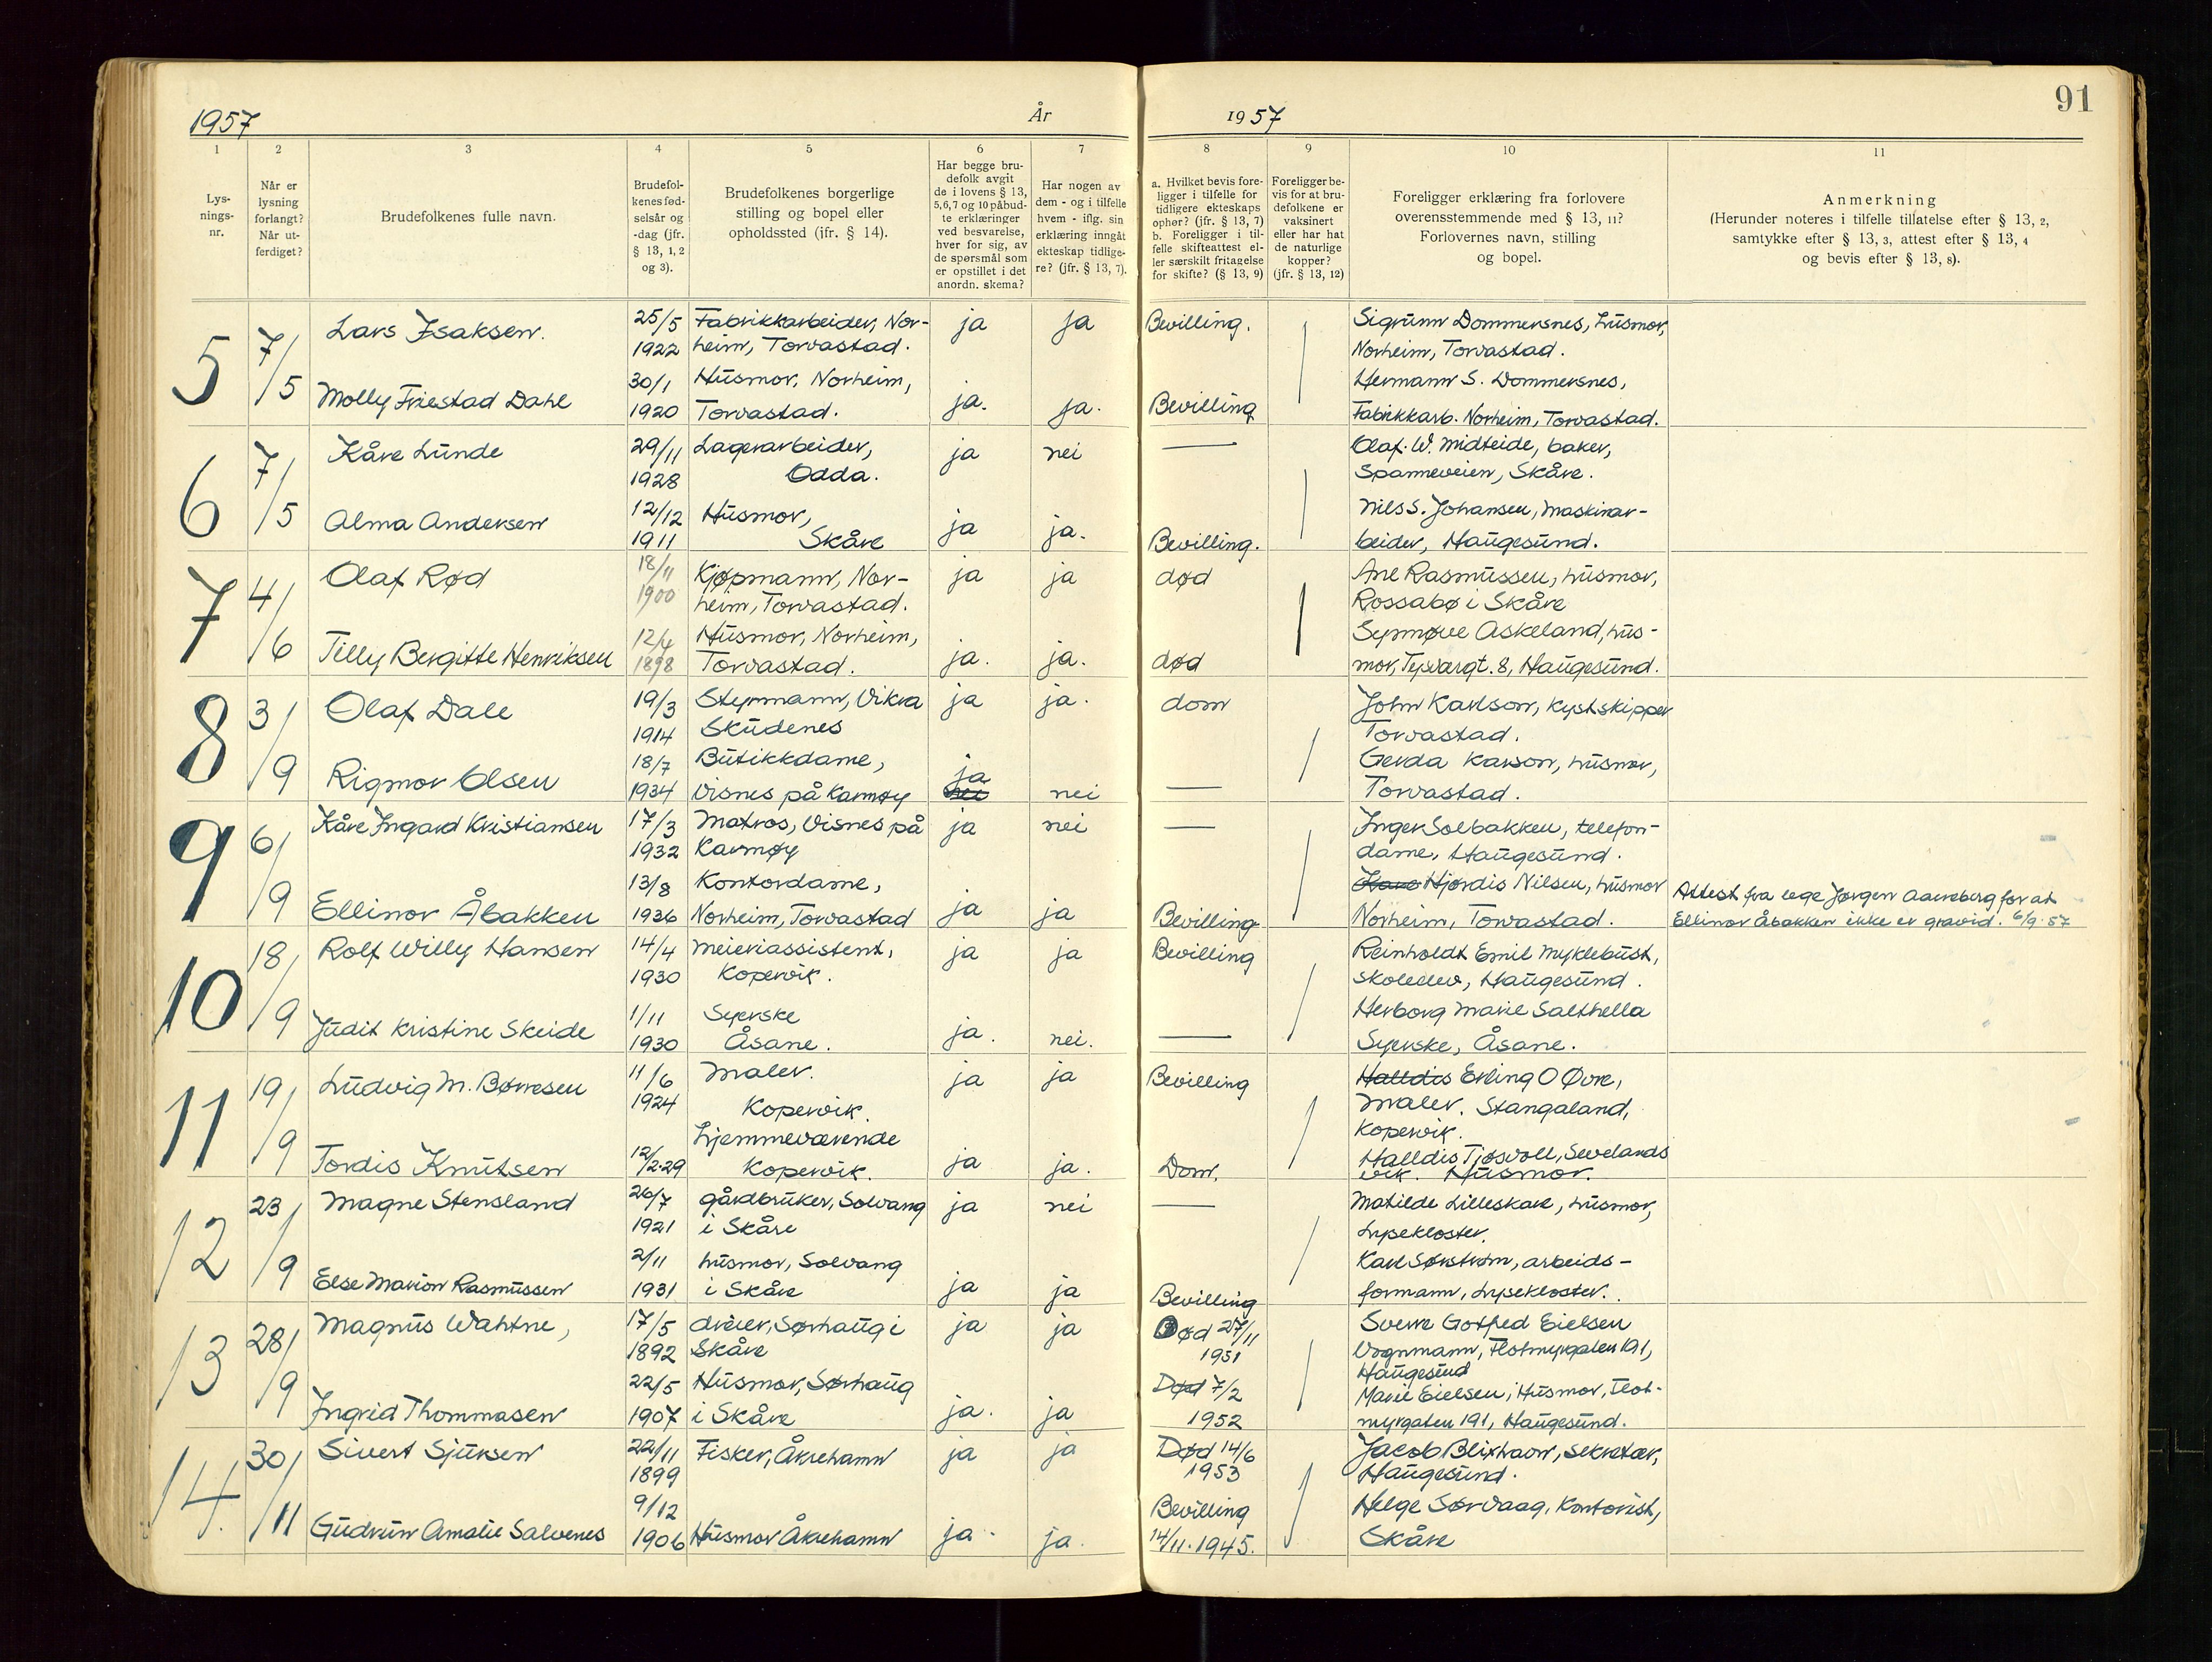 1957
År
1957
91
1
2
3
4
5
6
7
8
9
10
11
Lys-
nings-
nr.
Når er
lysning
forlangt?
Når ut-
ferdiget?
Brudefolkenes fulle navn.
Brudefol-
kenes fød-
selsår og
-dag (jfr.
§ 13, 1, 2
og 3).
Brudefolkenes borgerlige
stilling og bopel eller
opholdssted (jfr. § 14).
Har begge bru-
defolk avgit
de i lovens § 13,
5, 6, 7 og 10 påbud-
te erklæringer
ved besvarelse,
hver for sig, av
de spørsmål som
er opstillet i det
anordn. skema?
Har nogen av
dem - og i tilfelle
hvem - iflg. sin
erklæring inngåt
ekteskap tidlige-
re? (jfr. § 13, 7).
a. Hvilket bevis fore-
ligger i tilfelle for
tidligere ekteskaps
ophør? (jfr. § 13, 7)
b. Foreligger i til-
felle skifteattest el-
ler særskilt fritagelse
for skifte? (§ 13, 9)
Foreligger be-
vis for at bru-
defolkene er
vaksinert
eller har hat
de naturlige
kopper?
(jfr. § 13, 12)
Foreligger erklæring fra forlovere
overensstemmende med § 13, 11?
Forlovernes navn, stilling
og bopel.
Anmerkning
(Herunder noteres i tilfelle tillatelse efter § 13, 2,
samtykke efter § 13, 3, attest efter § 13, 4
og bevis efter § 13, 8).
5
7/5
Lars Isaksen.
25/5
1922
Fabrikkarbeider, Nor-
heim, Torvastad.
ja
ja
Bevilling.
Sigrunn Dommersnes, husmor,
Norheim, Torvastad.
Molly Friestad Dahl
30/1
1920
Husmor, Norheim,
Torvastad.
ja.
ja.
Bevilling
Hermann S. Dommersnes,
Fabrikkarb. Norheim, Torvastad.
6
7/5
Kåre Lunde
29/11
1928
Lagerarbeider,
Odda.
ja
nei
Olaf. W. Midteide, baker,
Spanneveien, Skåre.
Alma Andersen
12/12
1911
Husmor,
Skåre
ja
ja.
Bevilling.
Nils S. Johansen, maskinar-
beider, Haugesund.
7
4/6
Olaf Rød
18/11
1900
Kjøpmann, Nor-
heim, Torvastad.
ja
ja
død
Ane Rasmussen, husmor,
Rossabø i Skåre
Tilly Bergitte Henriksen
12/4
1898
Husmor, Norheim,
Torvastad.
ja.
ja.
død
Synnøve Askeland, hus-
mor, Tysværgt. 8, Haugesund.
8
3/9
Olaf Dale
19/3
1914
Styrmann, Vikra
Skudenes
ja
ja.
dom
John Karlson, kystskipper
Torvastad.
Rigmor Olsen
18/7
1934
Butikkdame,
Visnes på Karmøy
ja
nei
nei
Gerda Karson, husmor,
Torvastad.
9
6/9
Kåre Ingard Kristiansen
17/3
1932
Matros, Visnes på
Karmøy
ja
nei
Inger Solbakken, telefon-
dame, Haugesund.
Ellinor Åbakken
13/8
1936
Kontordame,
Norheim, Torvastad
ja
ja
Bevilling
Hjørdis Nilsen, husmor
Norheim, Torvastad.
Attest fra lege Jørgen Aareberg for at
Ellinor Åbakken ikke er gravid. 6/9-57
10
18/9
Rolf Willy Hansen
14/4
1930
Meieriassistent,
Kopervik.
ja
ja
Bevilling
Reinholdt Emil Myklebust,
skoleelev, Haugesund.
Judit Kristine Skeide
1/11
1930
Syerske
Åsane.
ja.
nei.
Herborg Marie Salthella
Syerske, Åsane.
11
19/9
Ludvig M. Børresen
11/6
1924
Maler.
Kopervik.
ja
ja
Bevilling
Halldis Erling O Øvre,
Maler. Stangaland,
Kopervik.
Tordis Knutsen
12/2-29
Hjemmeværende
Kopervik.
ja
ja.
Dom.
Halldis Tjøsvoll, Sevelands
vik. Husmor.
12
23/9
Magne Stensland
26/7
1921
gårdbruker, Solvang
i Skåre
ja
nei
Matilde Lilleskare, husmor,
Lysekloster.
Else Marion Rasmussen
2/11
1931
husmor, Solvang
i Skåre
ja
ja
Bevilling
Karl Sørstrøm, arbeids-
formann, Lysekloster.
13
28/9
Magnus Wahtne,
17/5
1892
dreier, Sørhaug i
Skåre
ja
ja
Død 27/11
1951
Sverre Gotfred Eielsen
Vognmann, Flotmyrgaten 191,
Haugesund
Ingrid Thommasen
22/5
1907
Husmor, Sørhaug
i Skåre
ja.
ja
Død 7/2
1952
Marie Eielsen, Husmor, Flot-
myrgaten 191, Haugesund.
14.
30/11
Sivert Sjursen
22/11
1899
Fisker, Åkrehamn
ja
ja
Død 14/6
1953
Jacob Blixhavn, sekretær,
Haugesund.
Gudrun Amalie Salvenes
9/12
1906
Husmor Åkrehamn
ja.
ja.
Bevilling
14/11. 1945.
Helge Sørvaag, Kontorist,
Skåre